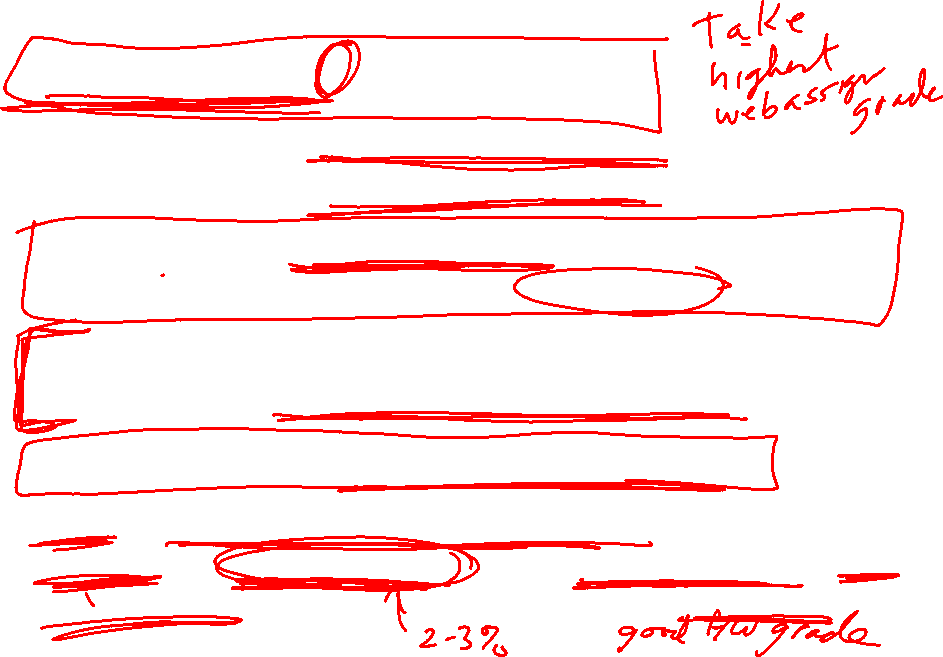 Take
highest
webassign
grade
2-3%
good HW grade